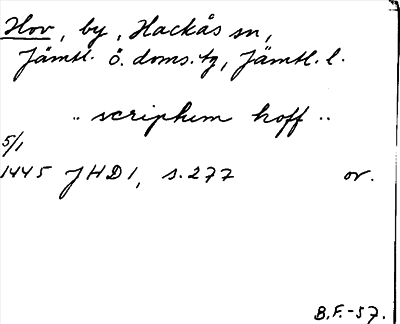 Hov, by, Hackås sn,
Jämtl. ö. doms. tg, Jämtl. l.
.. scriphem hoff ..
5/1
1445 JHD 1, s. 277 or.
B.F.-57.